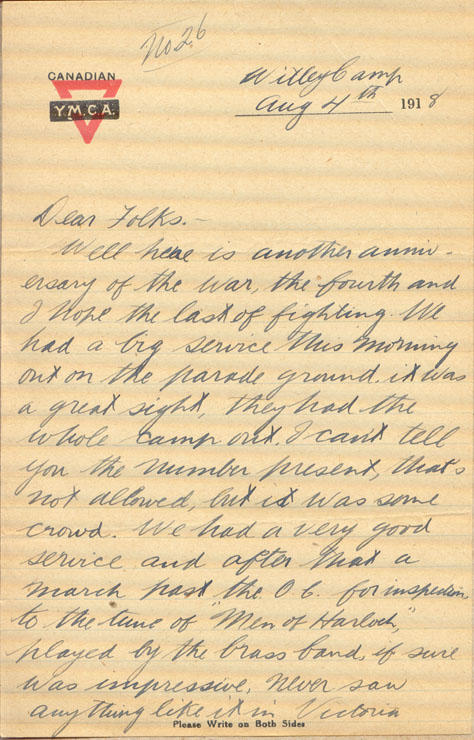 No 26
CANADIAN
Y.M.C.A.
Witley Camp
Aug 4th 1918
Dear Folks.-
Well here is another anni-
ersary of the war, the fourth and
I hope the last of fighting. We
had a big service this morning
out on the parade ground, it was
a great sight, they had the
whole camp out. I can't tell
you the number present, that's
not allowed, but it was some
crowd. We had a very good
service and after that a
march past the O.C. for inspection
to the tune of "Men of Harloch",
played by the brass band, it sure
was impressive. Never saw
anything like it in Victoria
Please Write on Both Sides